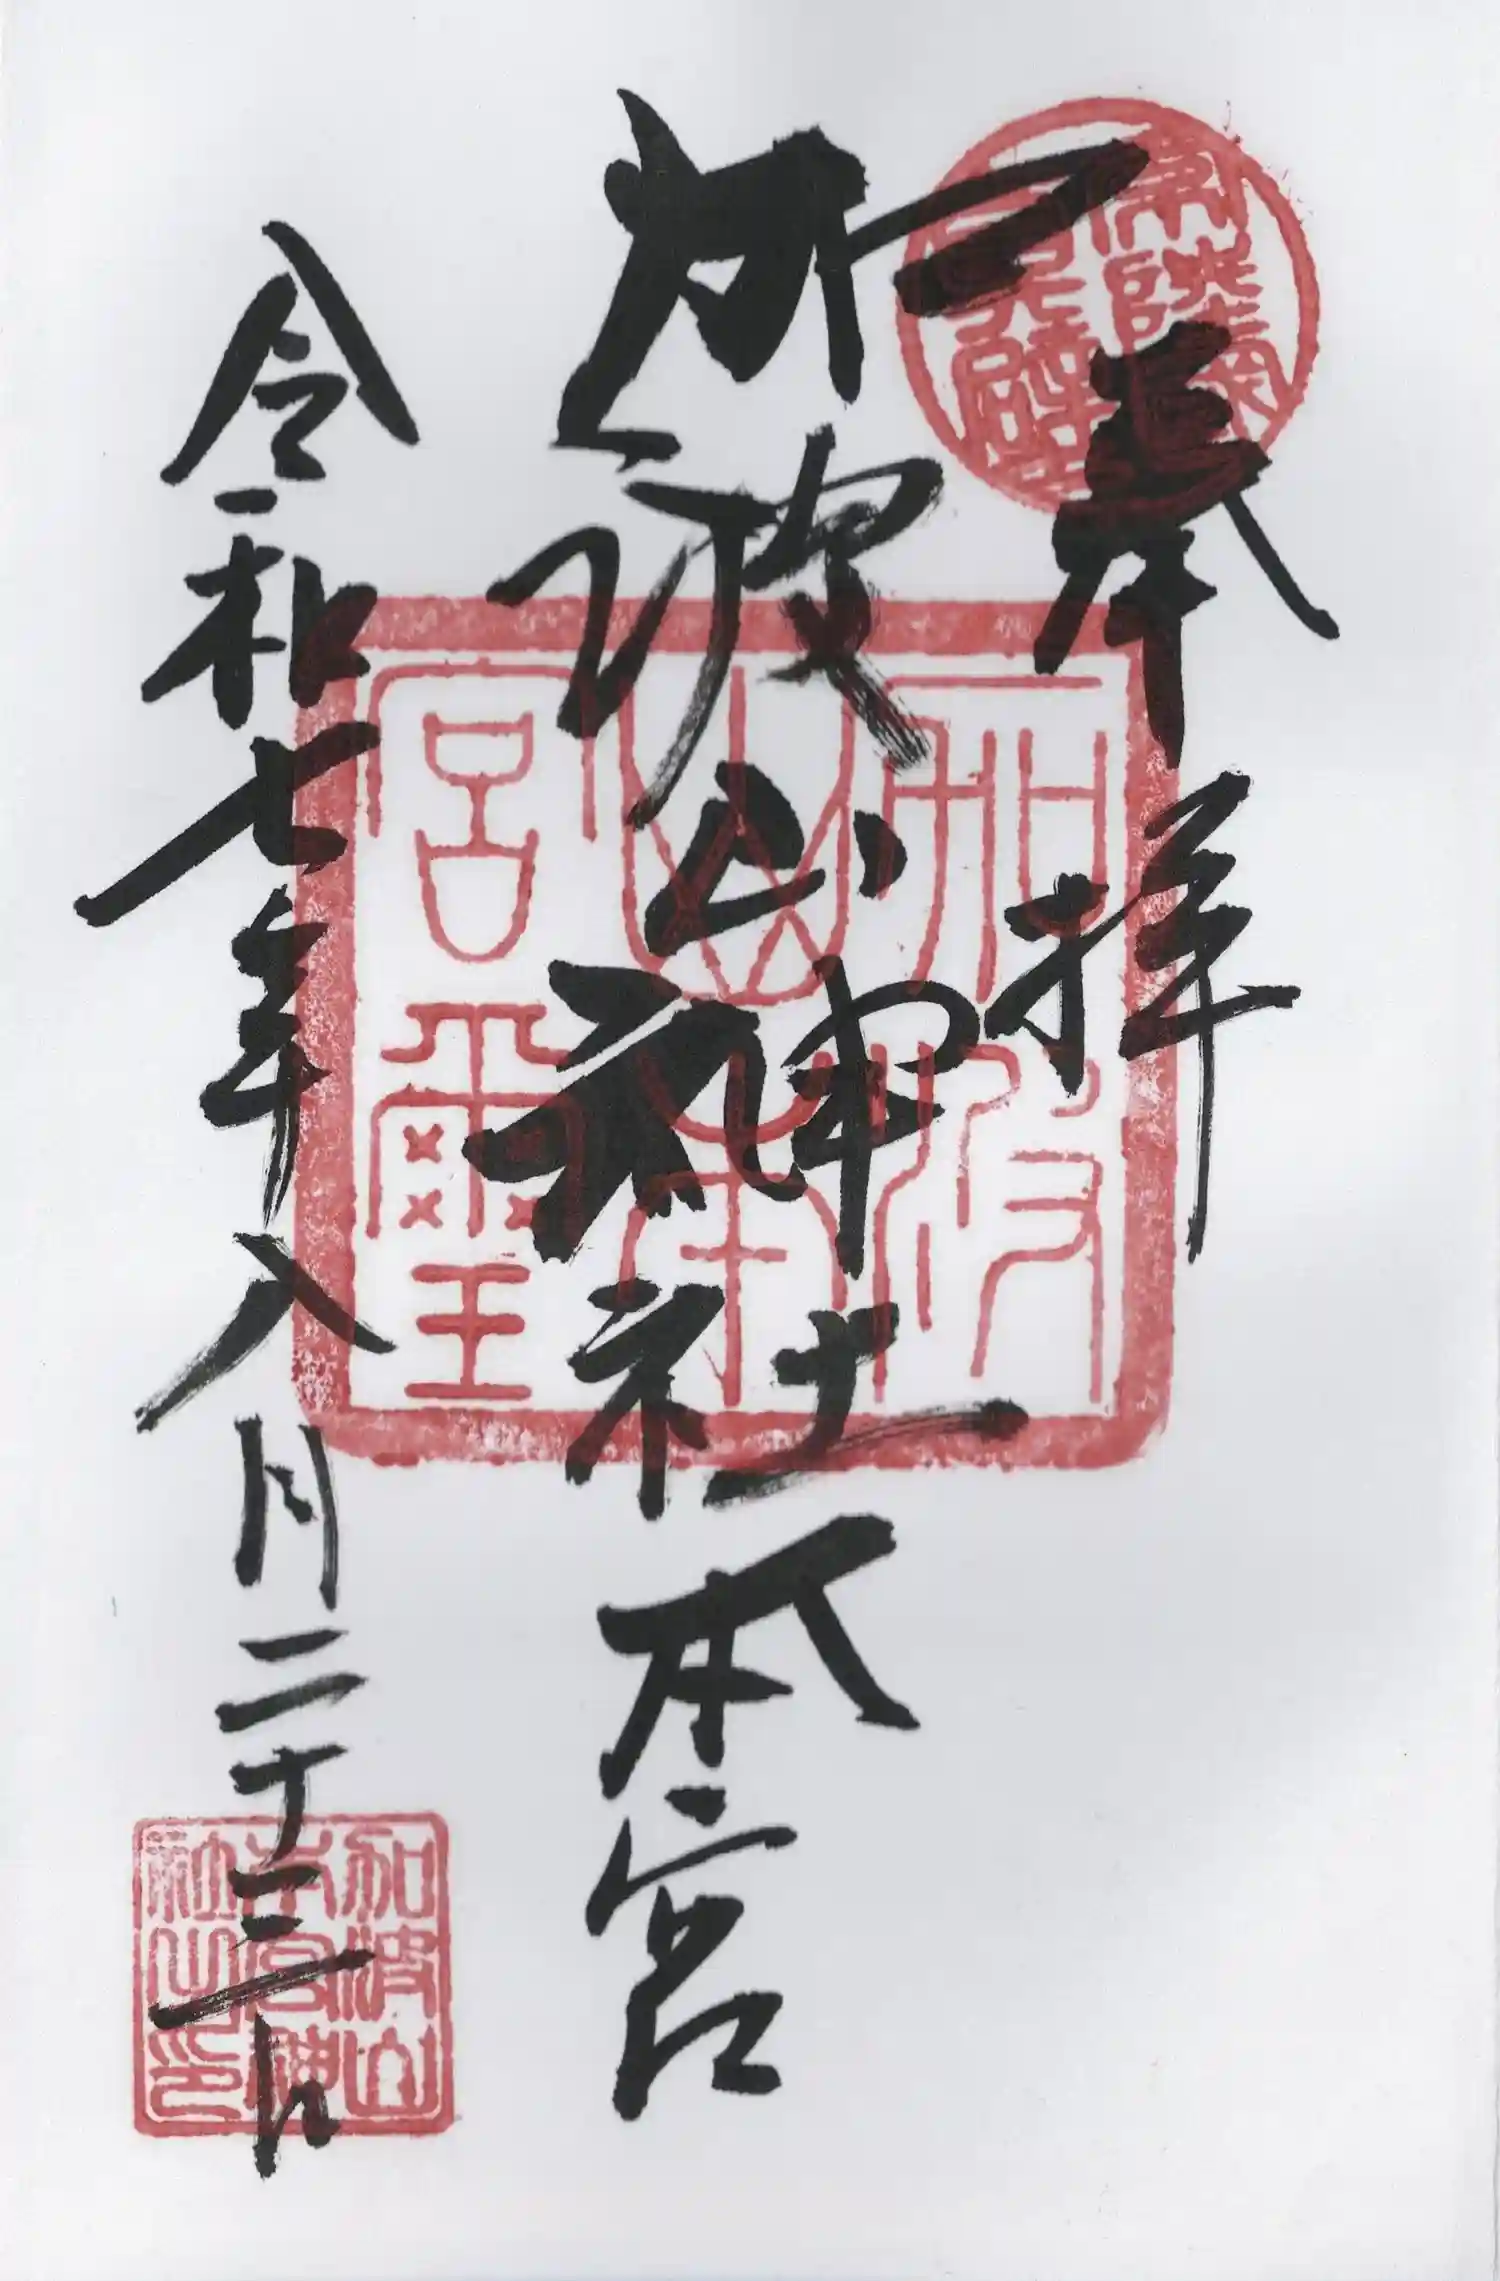 常陸國
真壁
奉拝
加波山神社本宮
加波
山本
宮璽
令和七年八月二十三日
加波山
本宮神
社之印